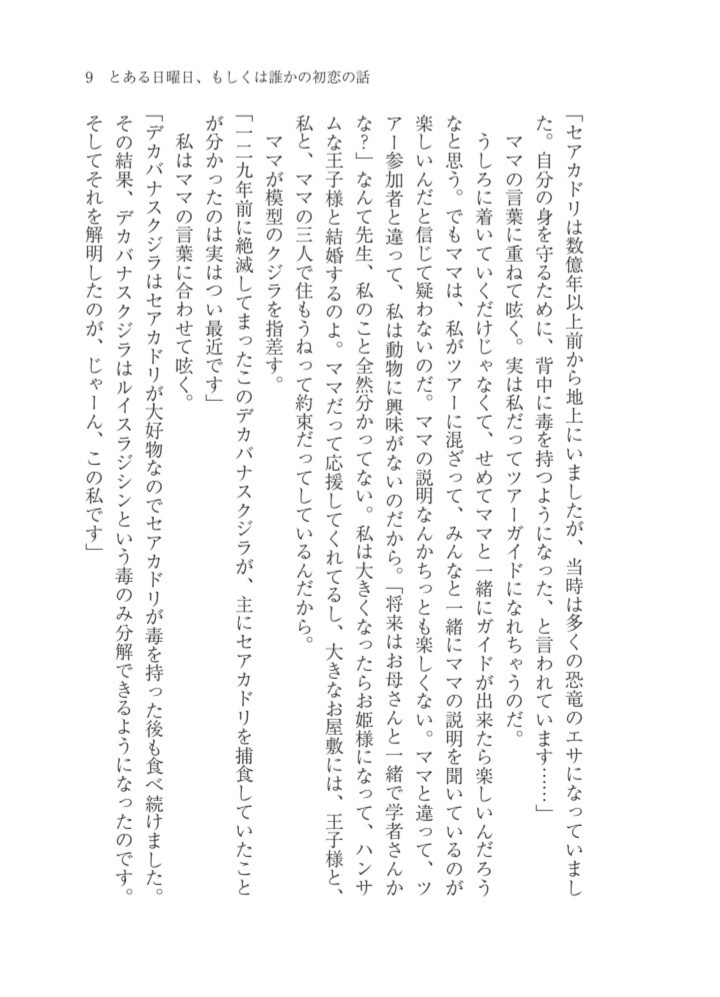 9 とある日曜日、もしくは誰かの初恋の話
「セアカドリは数億年以上前から地上にいましたが、当時は多くの恐竜のエサになっていまし
た。自分の身を守るために、背中に毒を持つようになった、と言われています……」
ママの言葉に重ねて呟く。実は私だってツアーガイドになれちゃうのだ。
うしろに着いていくだけじゃなくて、せめてママと一緒にガイドが出来たら楽しいんだろう
なと思う。でもママは、私がツアーに混ざって、みんなと一緒にママの説明を聞いているのが
楽しいんだと信じて疑わないのだ。ママの説明なんかちっとも楽しくない。ママと違って、ツ
アー参加者と違って、私は動物に興味がないのだから。「将来はお母さんと一緒で学者さんか
な？」なんて先生、私のこと全然分かってない。私は大きくなったらお姫様になって、ハンサ
ムな王子様と結婚するのよ。ママだって応援してくれてるし、大きなお屋敷には、王子様と、
私と、ママの三人で住もうねって約束だってしているんだから。
ママが模型のクジラを指差す。
「一二九年前に絶滅してまったこのデカバナスクジラが、主にセアカドリを捕食していたこと
が分かったのは実はつい最近です」
私はママの言葉に合わせて呟く。
「デカバナスクジラはセアカドリが大好物なのでセアカドリが毒を持った後も食べ続けました。
その結果、デカバナスクジラはルイスラジシンという毒のみ分解できるようになったのです。
そしてそれを解明したのが、じゃーん、この私です」